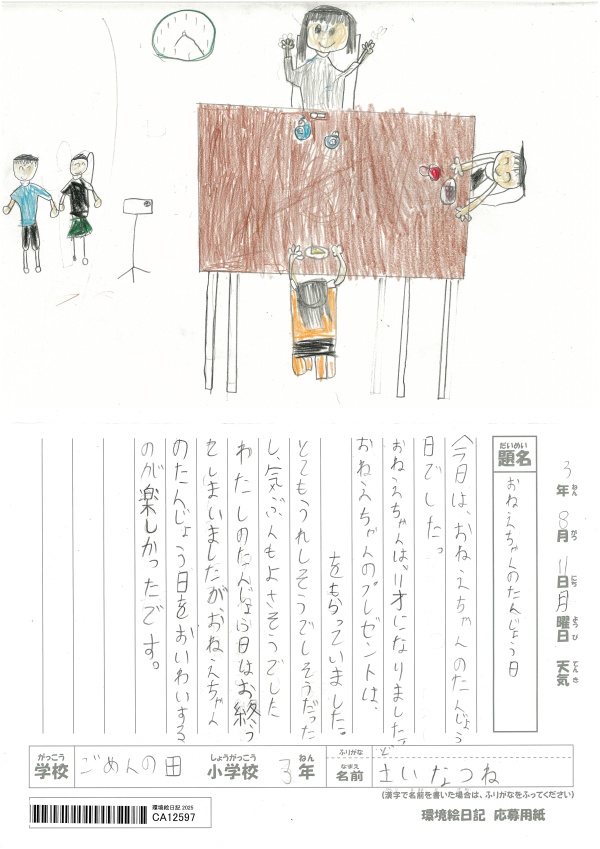 3年8月11日月曜日 天気
ねん がつ にち ようび てんき
だいめい
題名
おねえちゃんのたんじょう日
今日は、おねえちゃんのたんじょう
日でした。
おねえちゃんは、11才になりました。
おねえちゃんのプレゼントは、
をもらっていました。
とてもうれしそうでしそうだった
し、気ぶんもよさそうでした
わたしのたんじょう日はお終う
をしまいましたが、おねえちゃん
のたんじょう日をおいわいする
のが楽しかったです。
がっこう しょうがっこう ねん ふりがな ど
学校 ごめんの田 小学校 3年 なまえ 名前 土いなつね
(漢字で名前を書いた場合は、ふりがなをふってください)
環境絵日記 応募用紙
環境絵日記 2025
CA12597